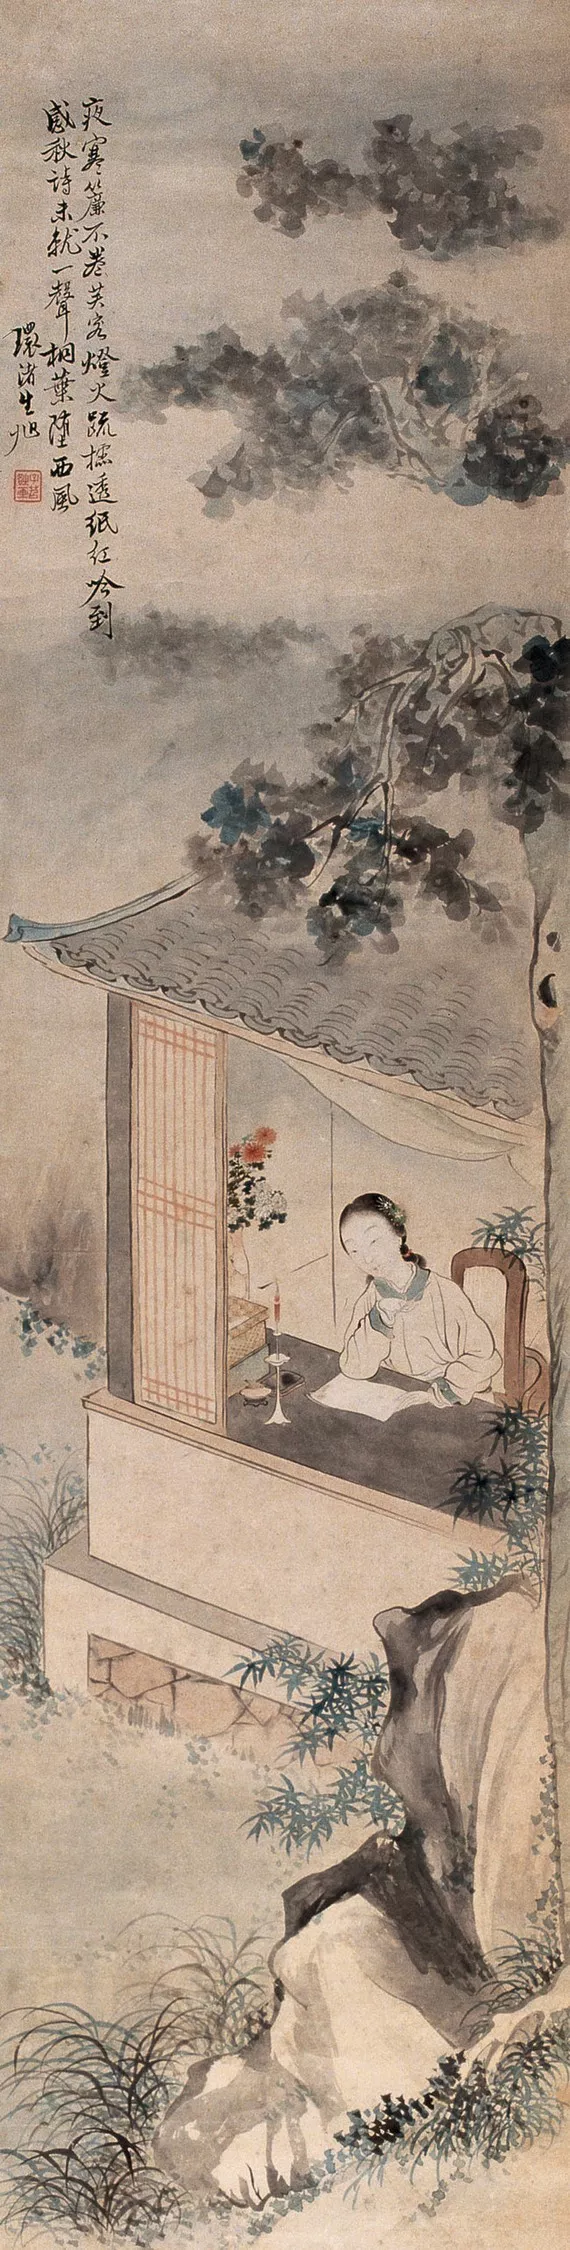 夜寒簾不卷芙容燈火疏櫺透紙紅吟到
感秋詩未就一聲桐葉墮西風
環渚生旭